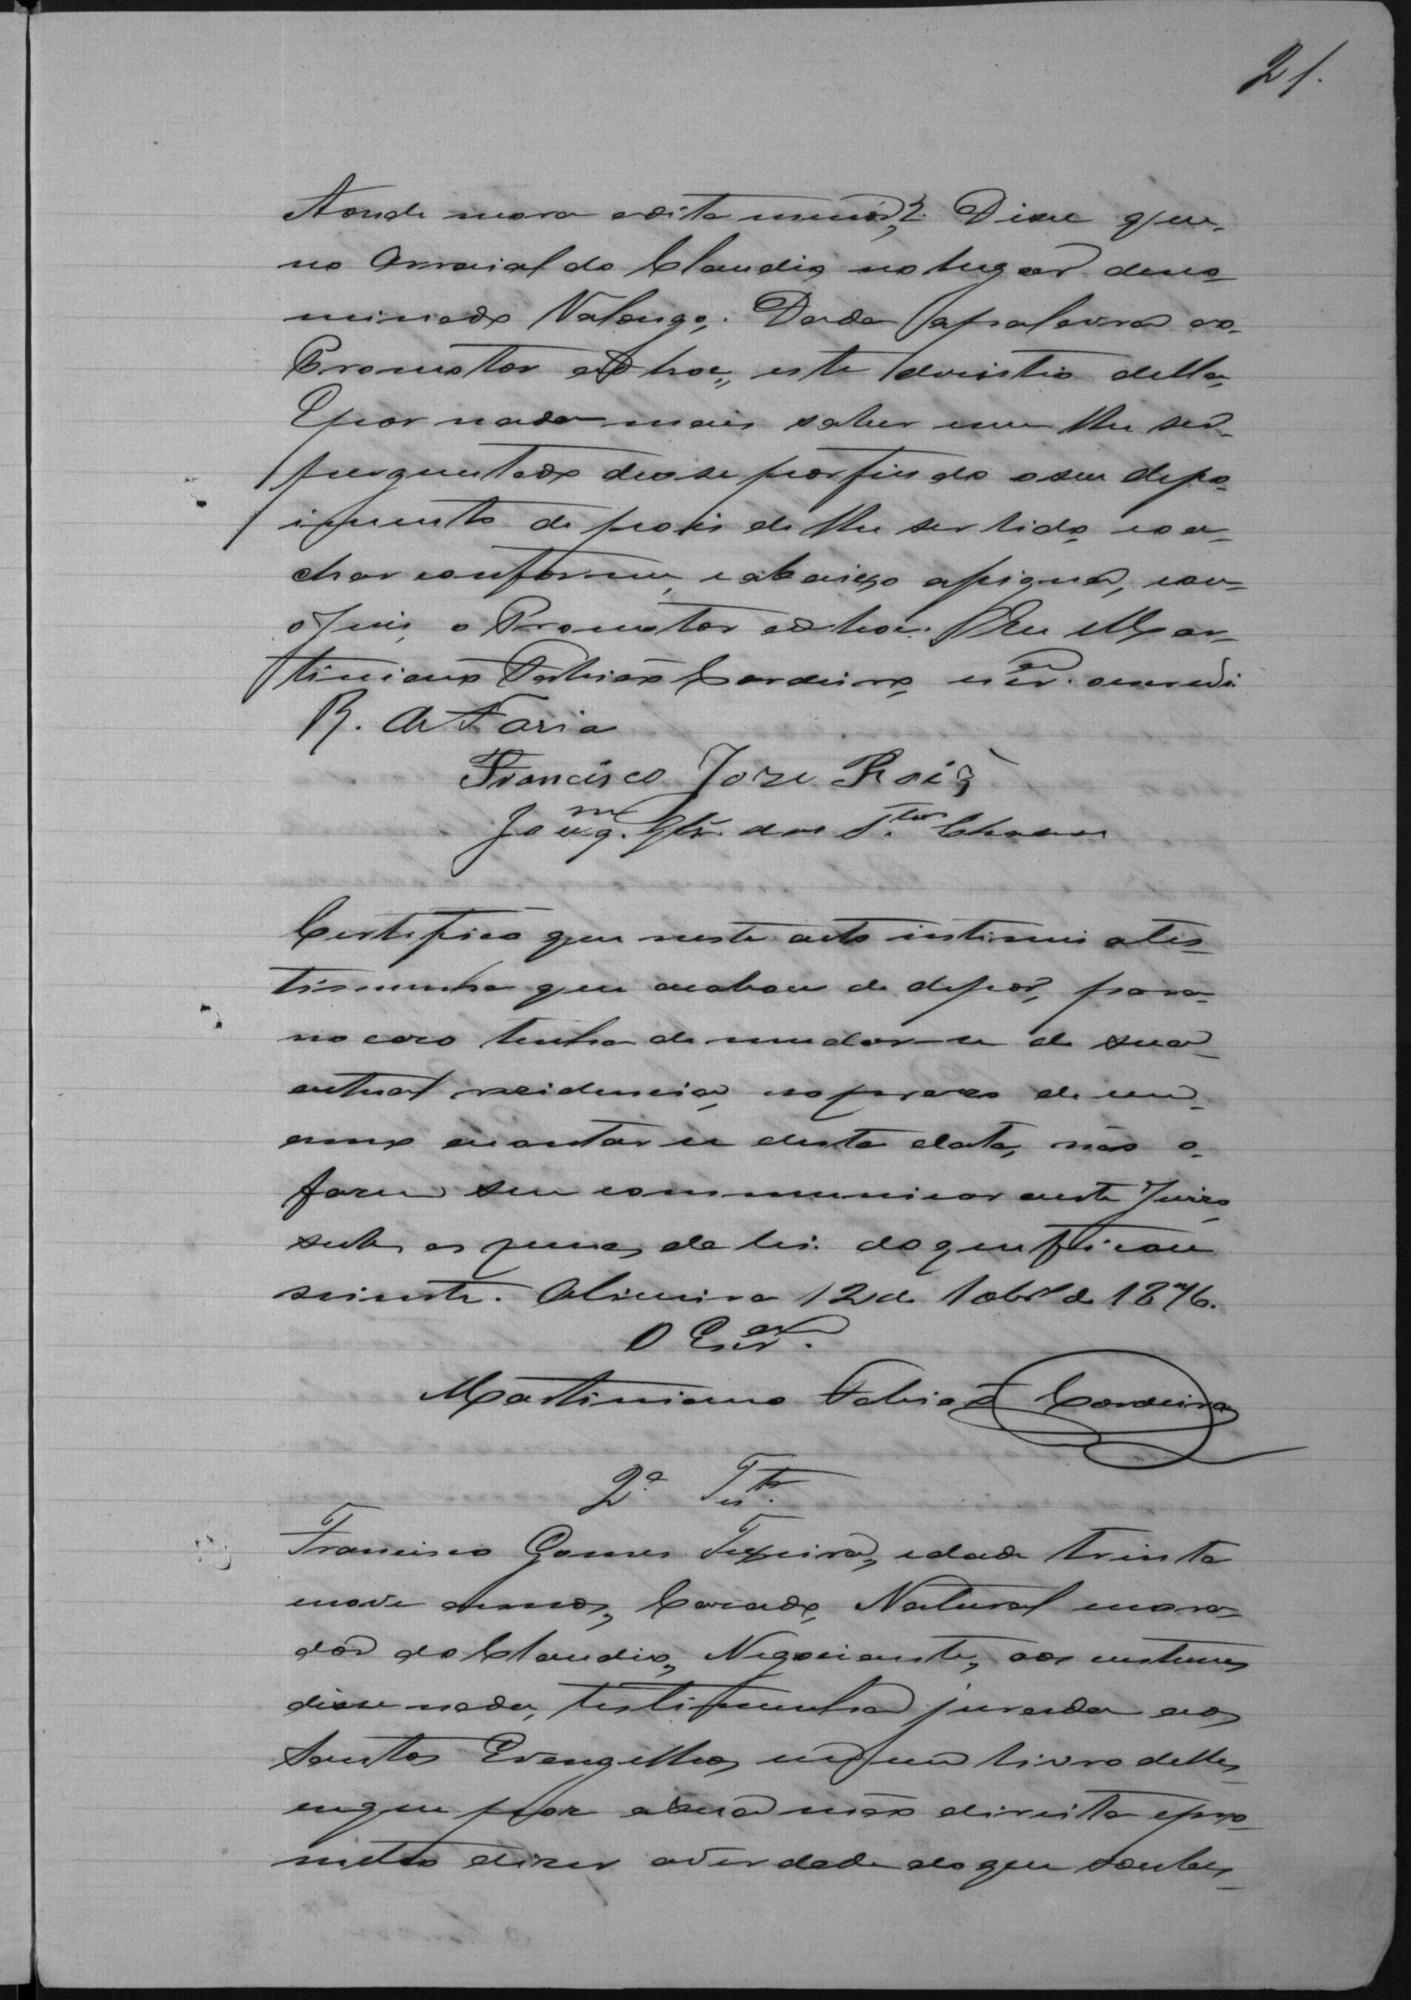 21.
Aonde mora a dita menór,? Disse que,
no Arraial do Claudio, no lugar deno-
minado Valongo,. Dada apalavra ao
Promotor adhoc,, este desistio della,
E por nada mais saber nem lhe ser
perguntado deose por findo o seu depo-
imento depois de lhe ser lido, e o a-
char conforme, e abaixo assigna, com
o Juis, o Promotor adhoc. Eu Mar-
tiniano Fabiaõ Cordeiro, escr.am escrevi
R. A Faria
Francisco Jose Roiz
Joaq.m dos S.tos Chaves
Certifico que neste acto intimei a tes-
timunha que acabou de depor, para
no caso tenha de mudar-se de sua
actual rezidencia, no prazo de um,
anno a contar-se desta data, não o,
fazer sem communicar a este Juizo,
sob as penas da lei. do que ficou
sciente. Oliveira 12 de Abril de 1876.
O Escr.am
Martiniano Fabiaõ Cordeiro
2.a Test.a
Francisco Gomes Teixeira, edade trinta
nove annos, Cazado, Natural mora-
dor do Claudio, Negociante, aos custumes
disse nada, testimunha jurada aos
Santos Evangelhos, em um livro delles,
em que poz a sua mão direita e pro-
meteo dizer a verdade do que soubes-